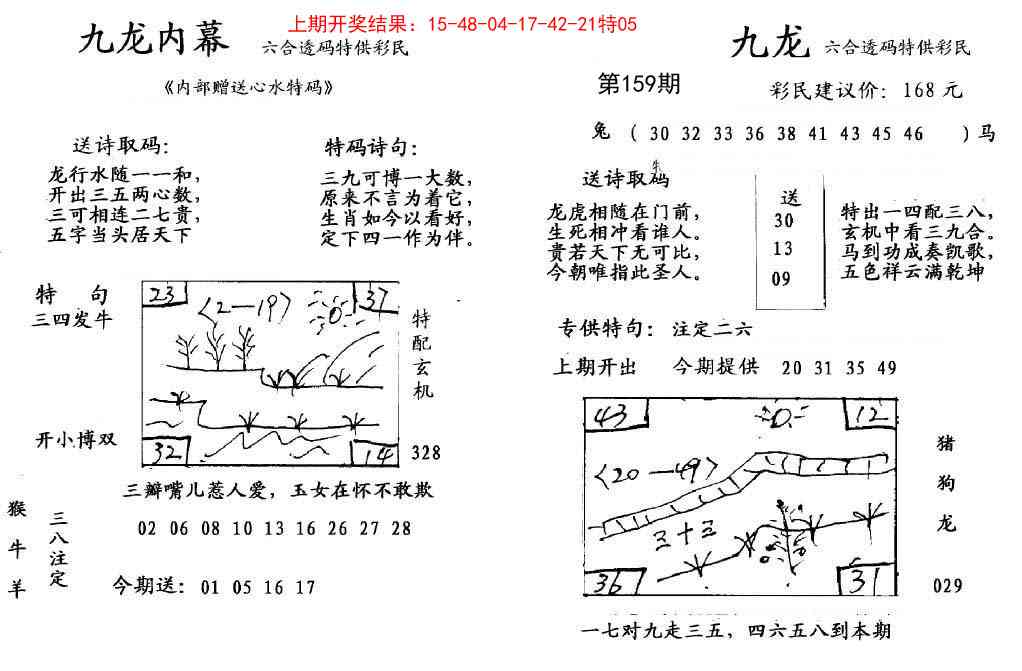 上期开奖结果：15-48-04-17-42-21特05
九龙内幕 六合透码特供彩民
《内部赠送心水特码》
送诗取码：
龙行水随一一和，
开出三五两心数，
三可相连二七贵，
五字当头居天下
特码诗句：
三九可博一大数，
原来不言为着它，
生肖如今以看好，
定下四一作为伴。
特 句
三四发牛
开小博双
23
37
〈2—19〉
32
14
特配玄机
328
三瓣嘴儿惹人爱，玉女在怀不敢欺
02 06 08 10 13 16 26 27 28
猴牛羊
三八注定
今期送：01 05 16 17
九龙 六合透码特供彩民
第159期
彩民建议价：168元
兔 （30 32 33 36 38 41 43 45 46 ）马
送诗取码
龙虎相随在门前，
生死相冲看谁人。
贵若天下无可比，
今朝唯指此圣人。
送
30
13
09
特出一四配三八，
玄机中看三九合。
马到功成奏凯歌，
五色祥云满乾坤
专供特句：注定二六
上期开出 今期提供 20 31 35 49
43
12
〈20—49〉
三十三
36
31
猪
狗
龙
029
一七对九走三五，四六五八到本期